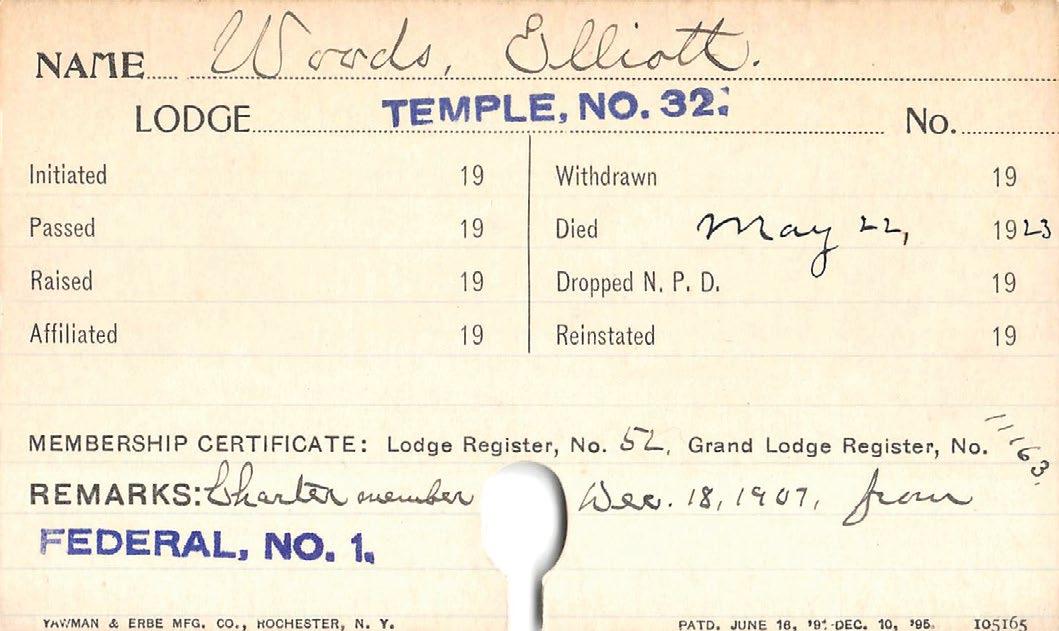 NAME Woods, Elliott.
LODGE TEMPLE, NO. 32. No.
Initiated 19 Withdrawn 19
Passed 19 Died May 22, 1923
Raised 19 Dropped N. P. D. 19
Affiliated 19 Reinstated 19
MEMBERSHIP CERTIFICATE: Lodge Register, No. 52, Grand Lodge Register, No. 11163.
REMARKS: Charter member Dec. 18, 1907, from
FEDERAL, NO. 1.
YAWMAN & ERBE MFG. CO., ROCHESTER, N. Y. PATD. JUNE 16, '91-DEC. 10, '95. 105165